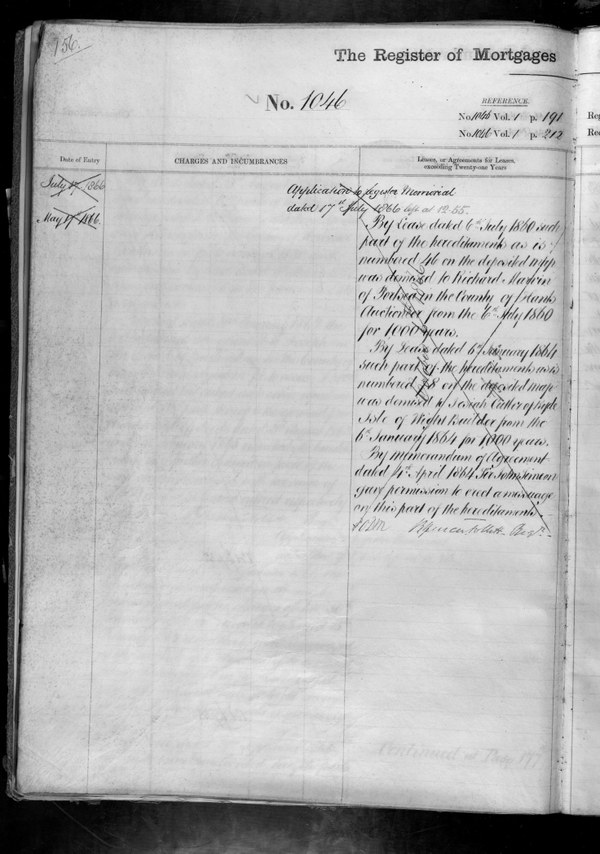 156.
The Register of Mortgages
No. 1046
REFERENCE.
No. 1045 Vol. 1 p. 191
No. 1046 Vol. 1 p. 212
Date of Entry
CHARGES AND INCUMBRANCES
Leases, or Agreements for Leases,
exceeding Twenty-one Years
July 17 1866
Application to register Memorial
dated 17th July 1866 left at 12.55.
May 17th 1866.
By Lease dated 6th July 1860 such
part of the hereditaments as is
numbered 46 on the deposited map
was demised to Richard
of Portsea in the County of Hants
Auctioneer from the 6th July 1860
for 1,000 years.
By Lease dated 6th January 1864
such part of the hereditaments as is
numbered 48 on the deposited map
was demised to Josiah Cutler of Ryde
Isle of Wight Builder from the
6th January 1864 for 1,000 years.
By Memorandum of Agreement
dated 4th April 1864 Sir John Simeon
gave permission to erect a messuage
on this part of the hereditaments.
Spencer Follett Regr.
Continued at Page 177